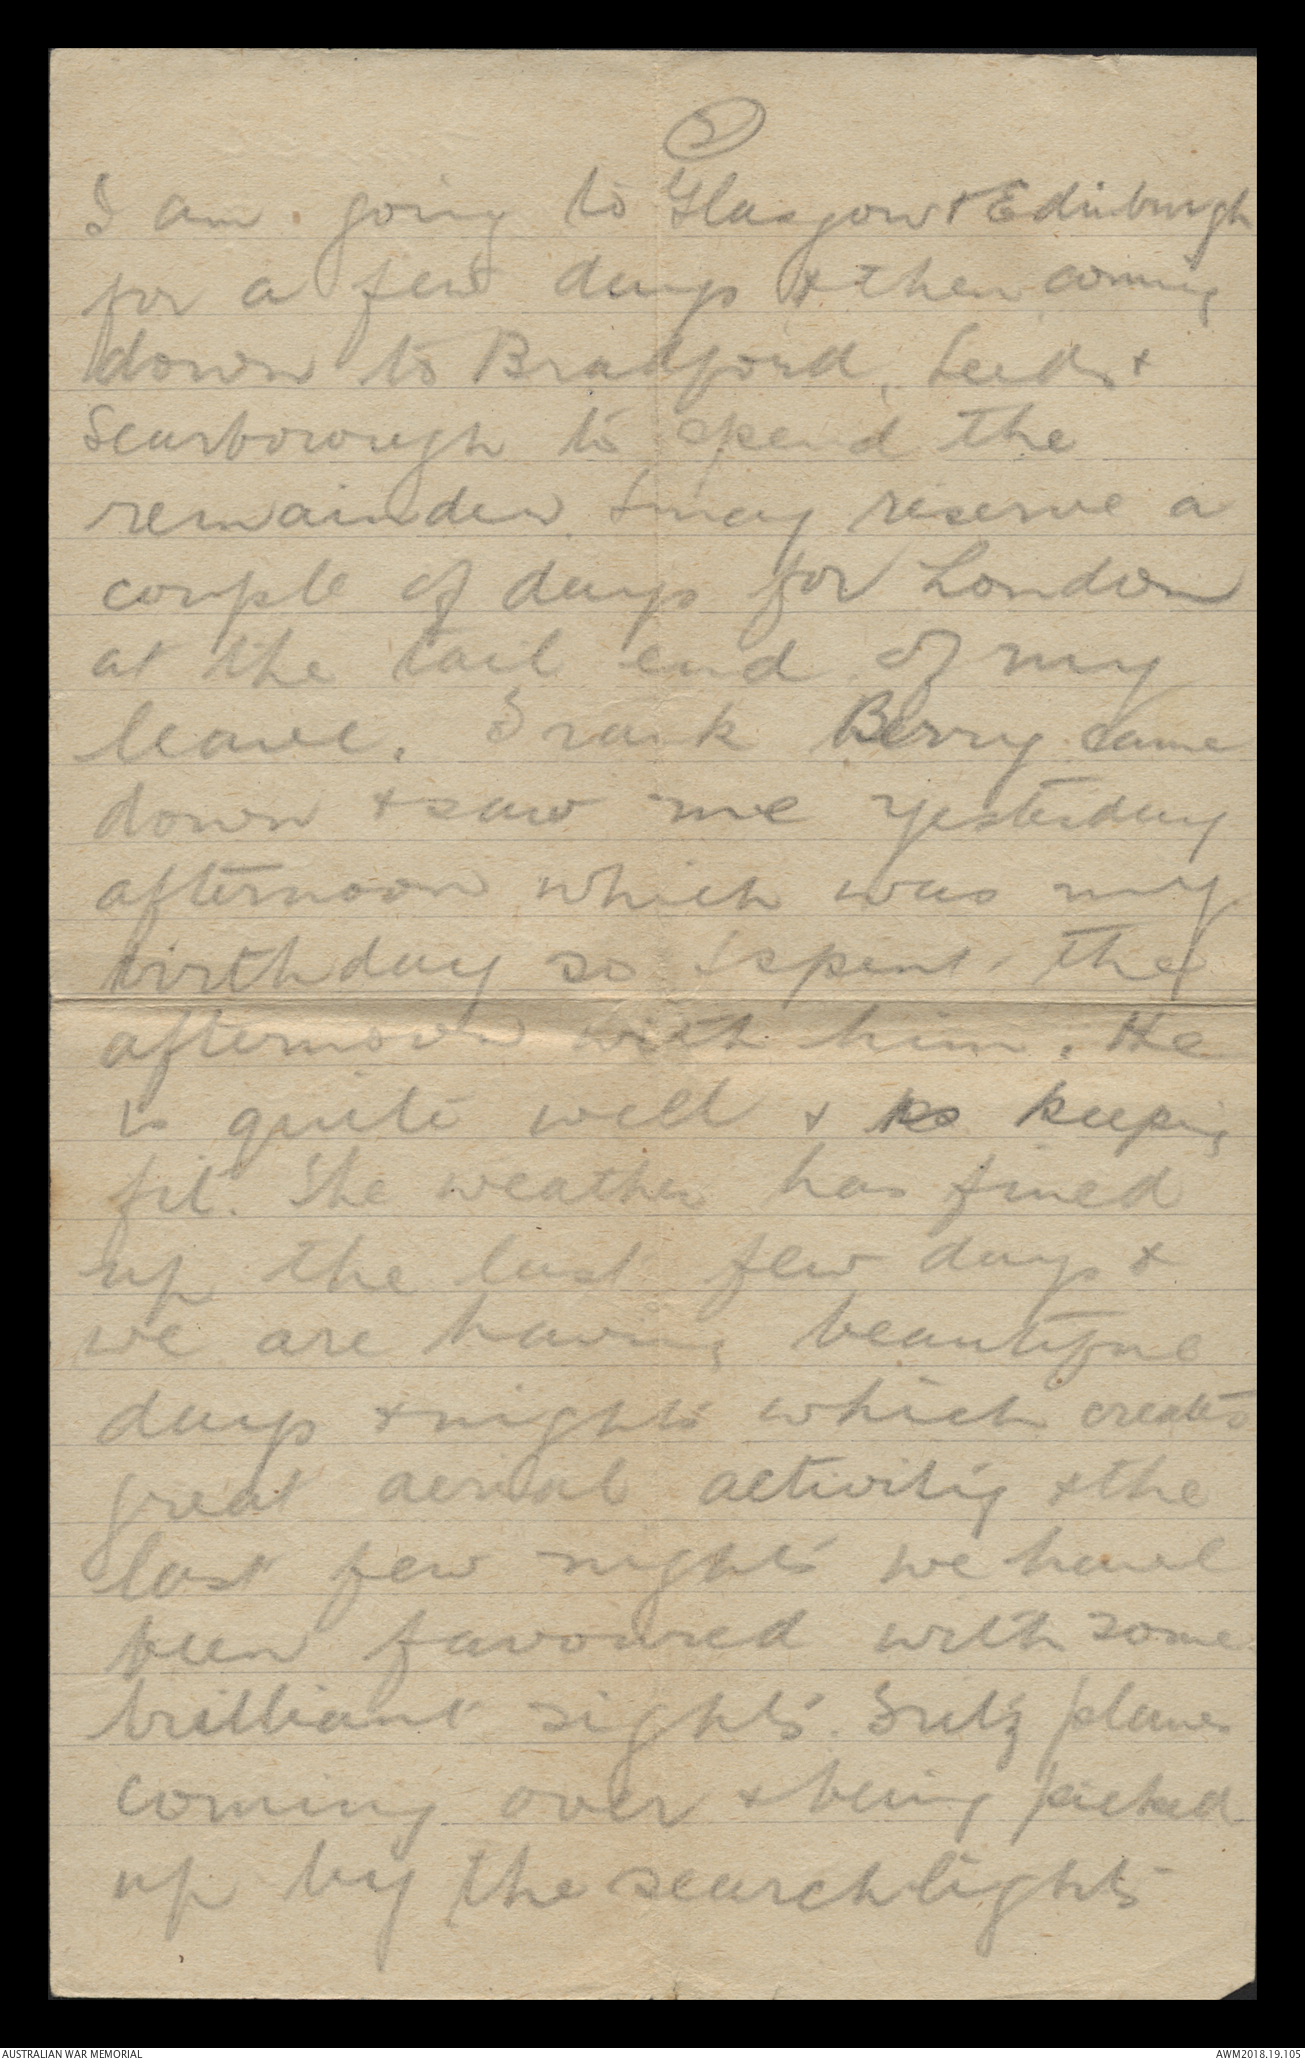 5
I am going to Glasgow & Edinburgh
for a few days & then coming
down to Bradford, Leeds &
Scarborough to spend the
remainder & may reserve a
couple of days for London
at the tail end of my
leave. Frank Berry came
down & saw me yesterday
afternoon which was my
birthday so I spent the
afternoon with him. He
is quite well & keeping
fit. The weather has fined
up the last few days &
we are having beautiful
days & nights which creates
great aerial activity & the
last few nights we have
been favoured with some
brilliant sights. Fritz planes
coming over & being picked
up by the searchlights
AUSTRALIAN WAR MEMORIAL
AWM2018.19.105